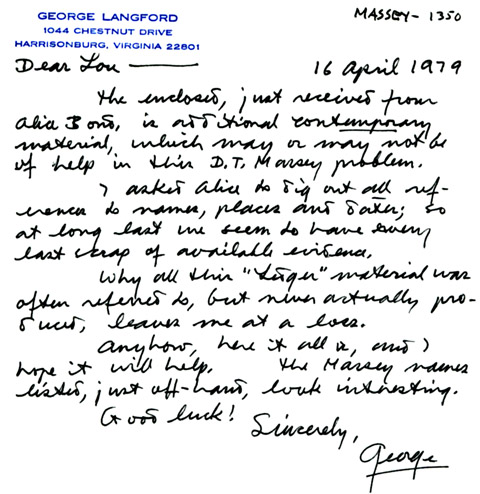 MASSEY - 1350
GEORGE LANGFORD
1044 CHESTNUT DRIVE
HARRISONBURG, VIRGINIA 22801
Dear Lou — 16 April 1979
The enclosed, just received from
Alice Bond, is additional contemporary
material, which may or may not be
of help in this D.T. Massey problem.
I asked Alice to dig out all ref-
erences to names, places and dates; so
at long last we seem to have every
last scrap of available evidence.
Why all this "Luger" material was
often referred to, but never actually pro-
duced, leaves me at a loss.
Anyhow, here it all is, and I
hope it will help. The Massey names
listed, just off-hand, look interesting.
Good luck!
Sincerely,
George